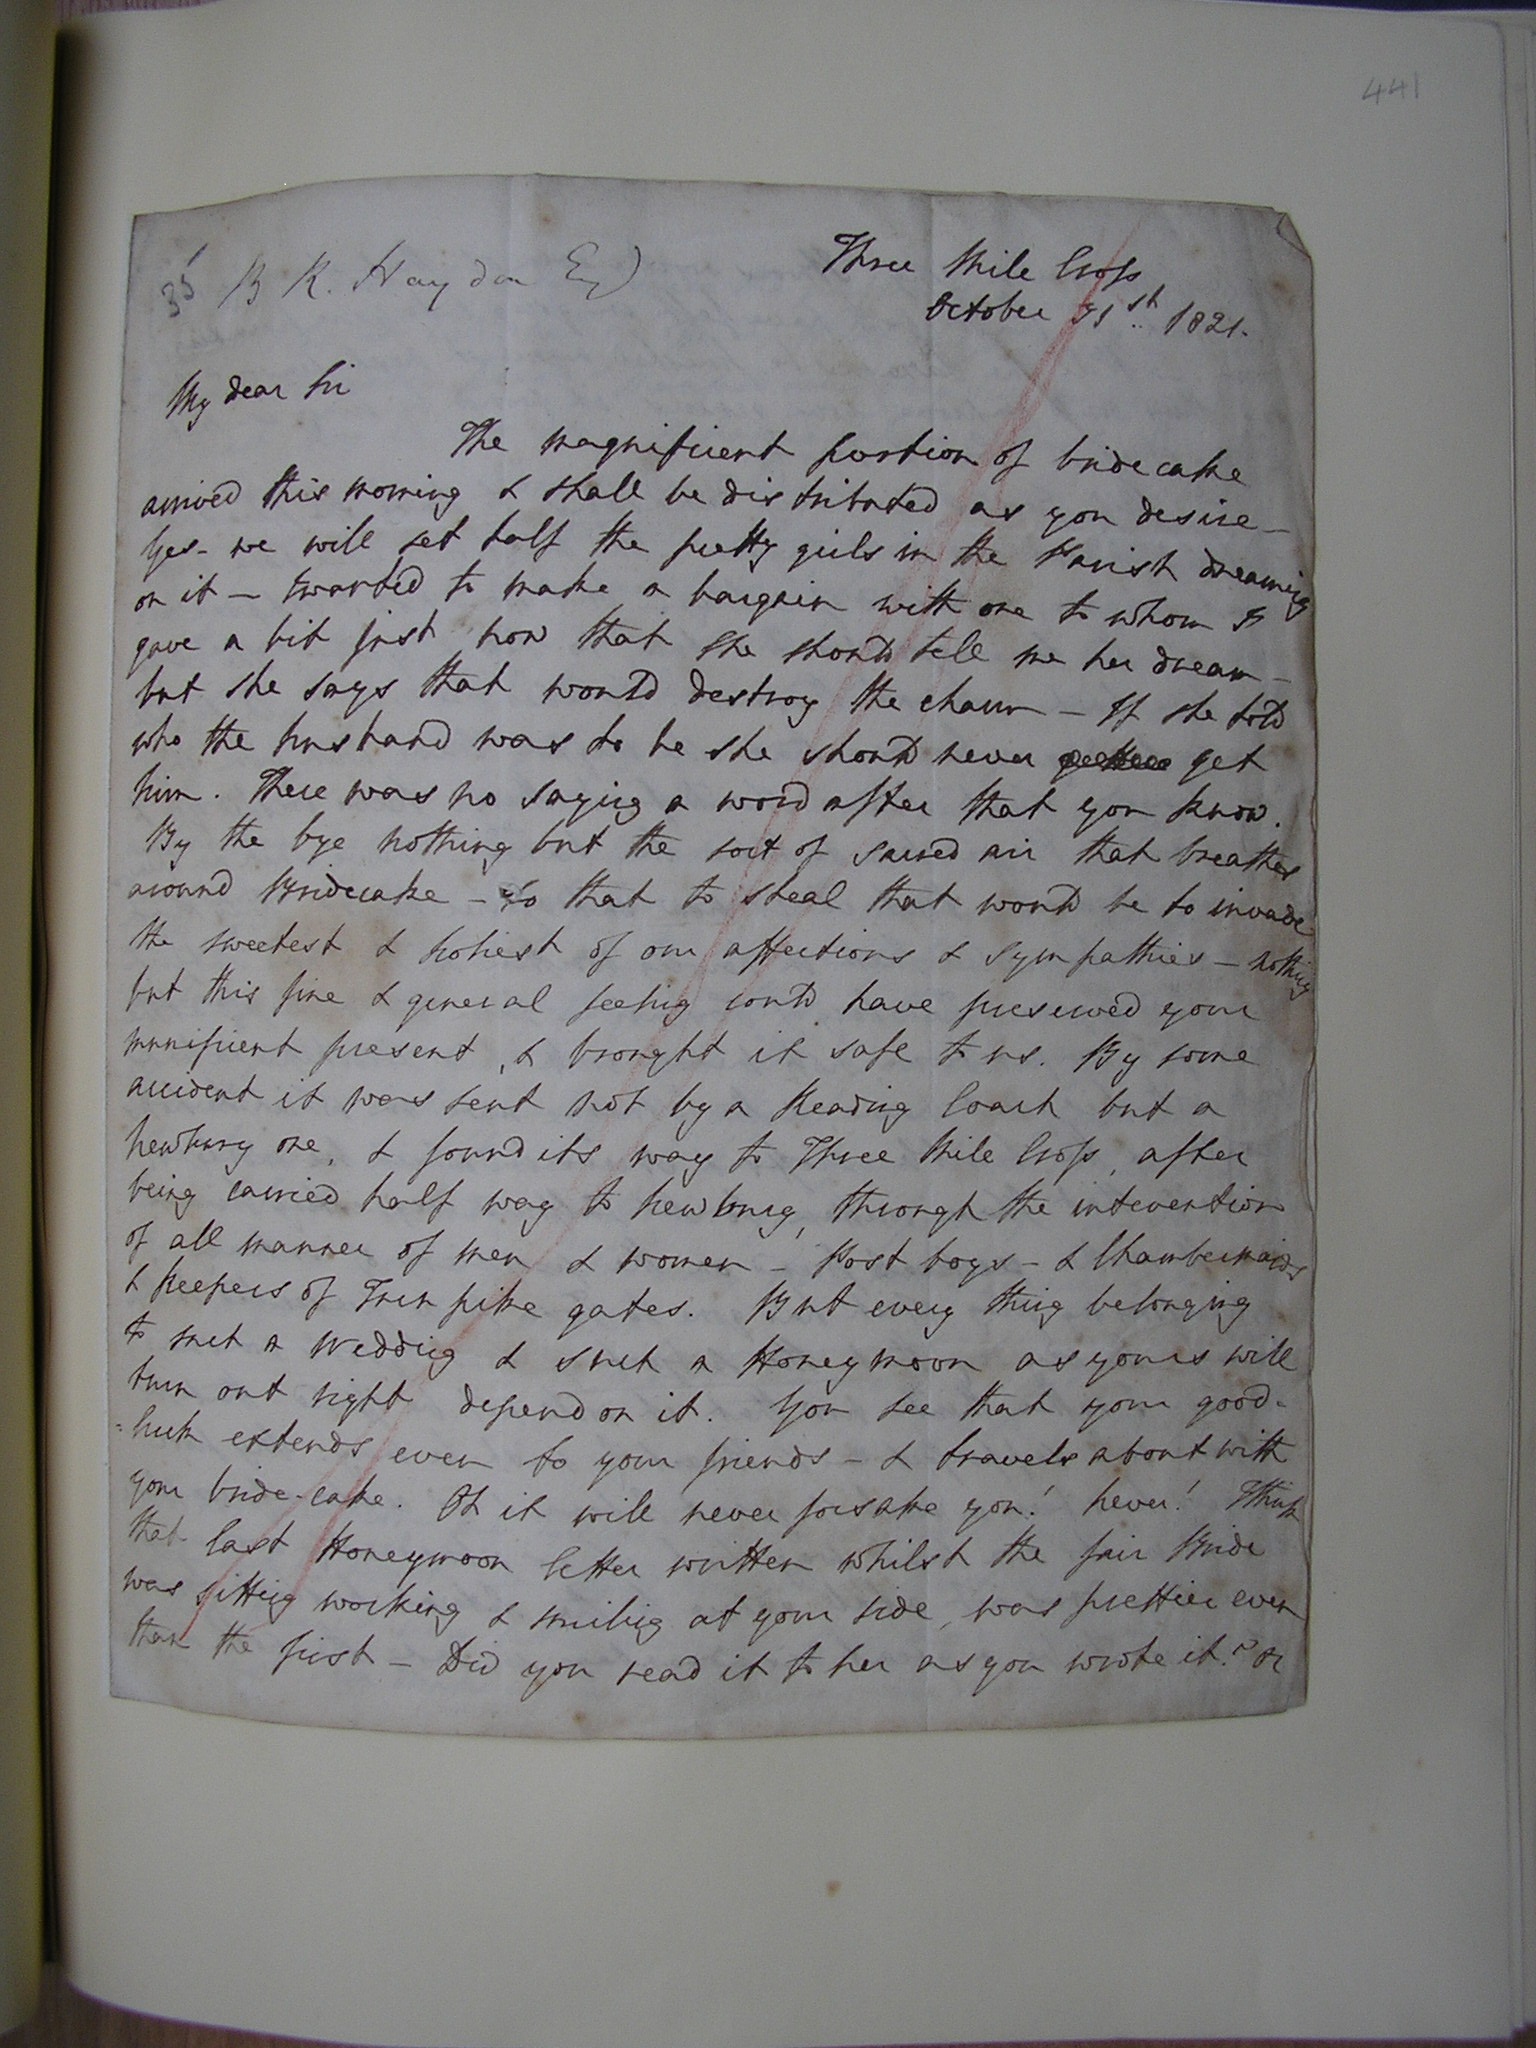 441
35 B R. Haydon Esq
Three Mile Cross
October 31st 1821.
My dear Sir
The magnificent portion of bride cake
arrived this morning & shall be distributed as you desire -
Yes - we will set half the pretty girls in the Parish dreaming
on it - I wanted to make a bargain with one to whom I
gave a bit just now that she should tell me her dream -
but she says that would destroy the charm - If she told
who the husband was to be she should never get
him. There was no saying a word after that you know.
By the bye nothing but the sort of sacred air that breathes
around Bridecake - so that to steal that would be to invade
the sweetest & holiest of our affections & sympathies - nothing
but this fine & general feeling could have preserved your
munificent present, & brought it safe to us. By some
accident it was sent not by a Reading Coach but a
Newbury one, & found its way to Three Mile Cross, after
being carried half way to Newbury, through the intervention
of all manner of men & women - Post boys - & Chambermaids
& Keepers of Turnpike gates. But every thing belonging
to such a Wedding & such a Honeymoon as yours will
turn out right depend on it. You see that your good-
=luck extends even to your friends - & travels about with
your bride-cake. Oh it will never forsake you! Never! I think
that last Honeymoon letter written whilst the fair Bride
was sitting working & smiling at your side, was prettier even
than the first - Did you read it to her as you wrote it? Or